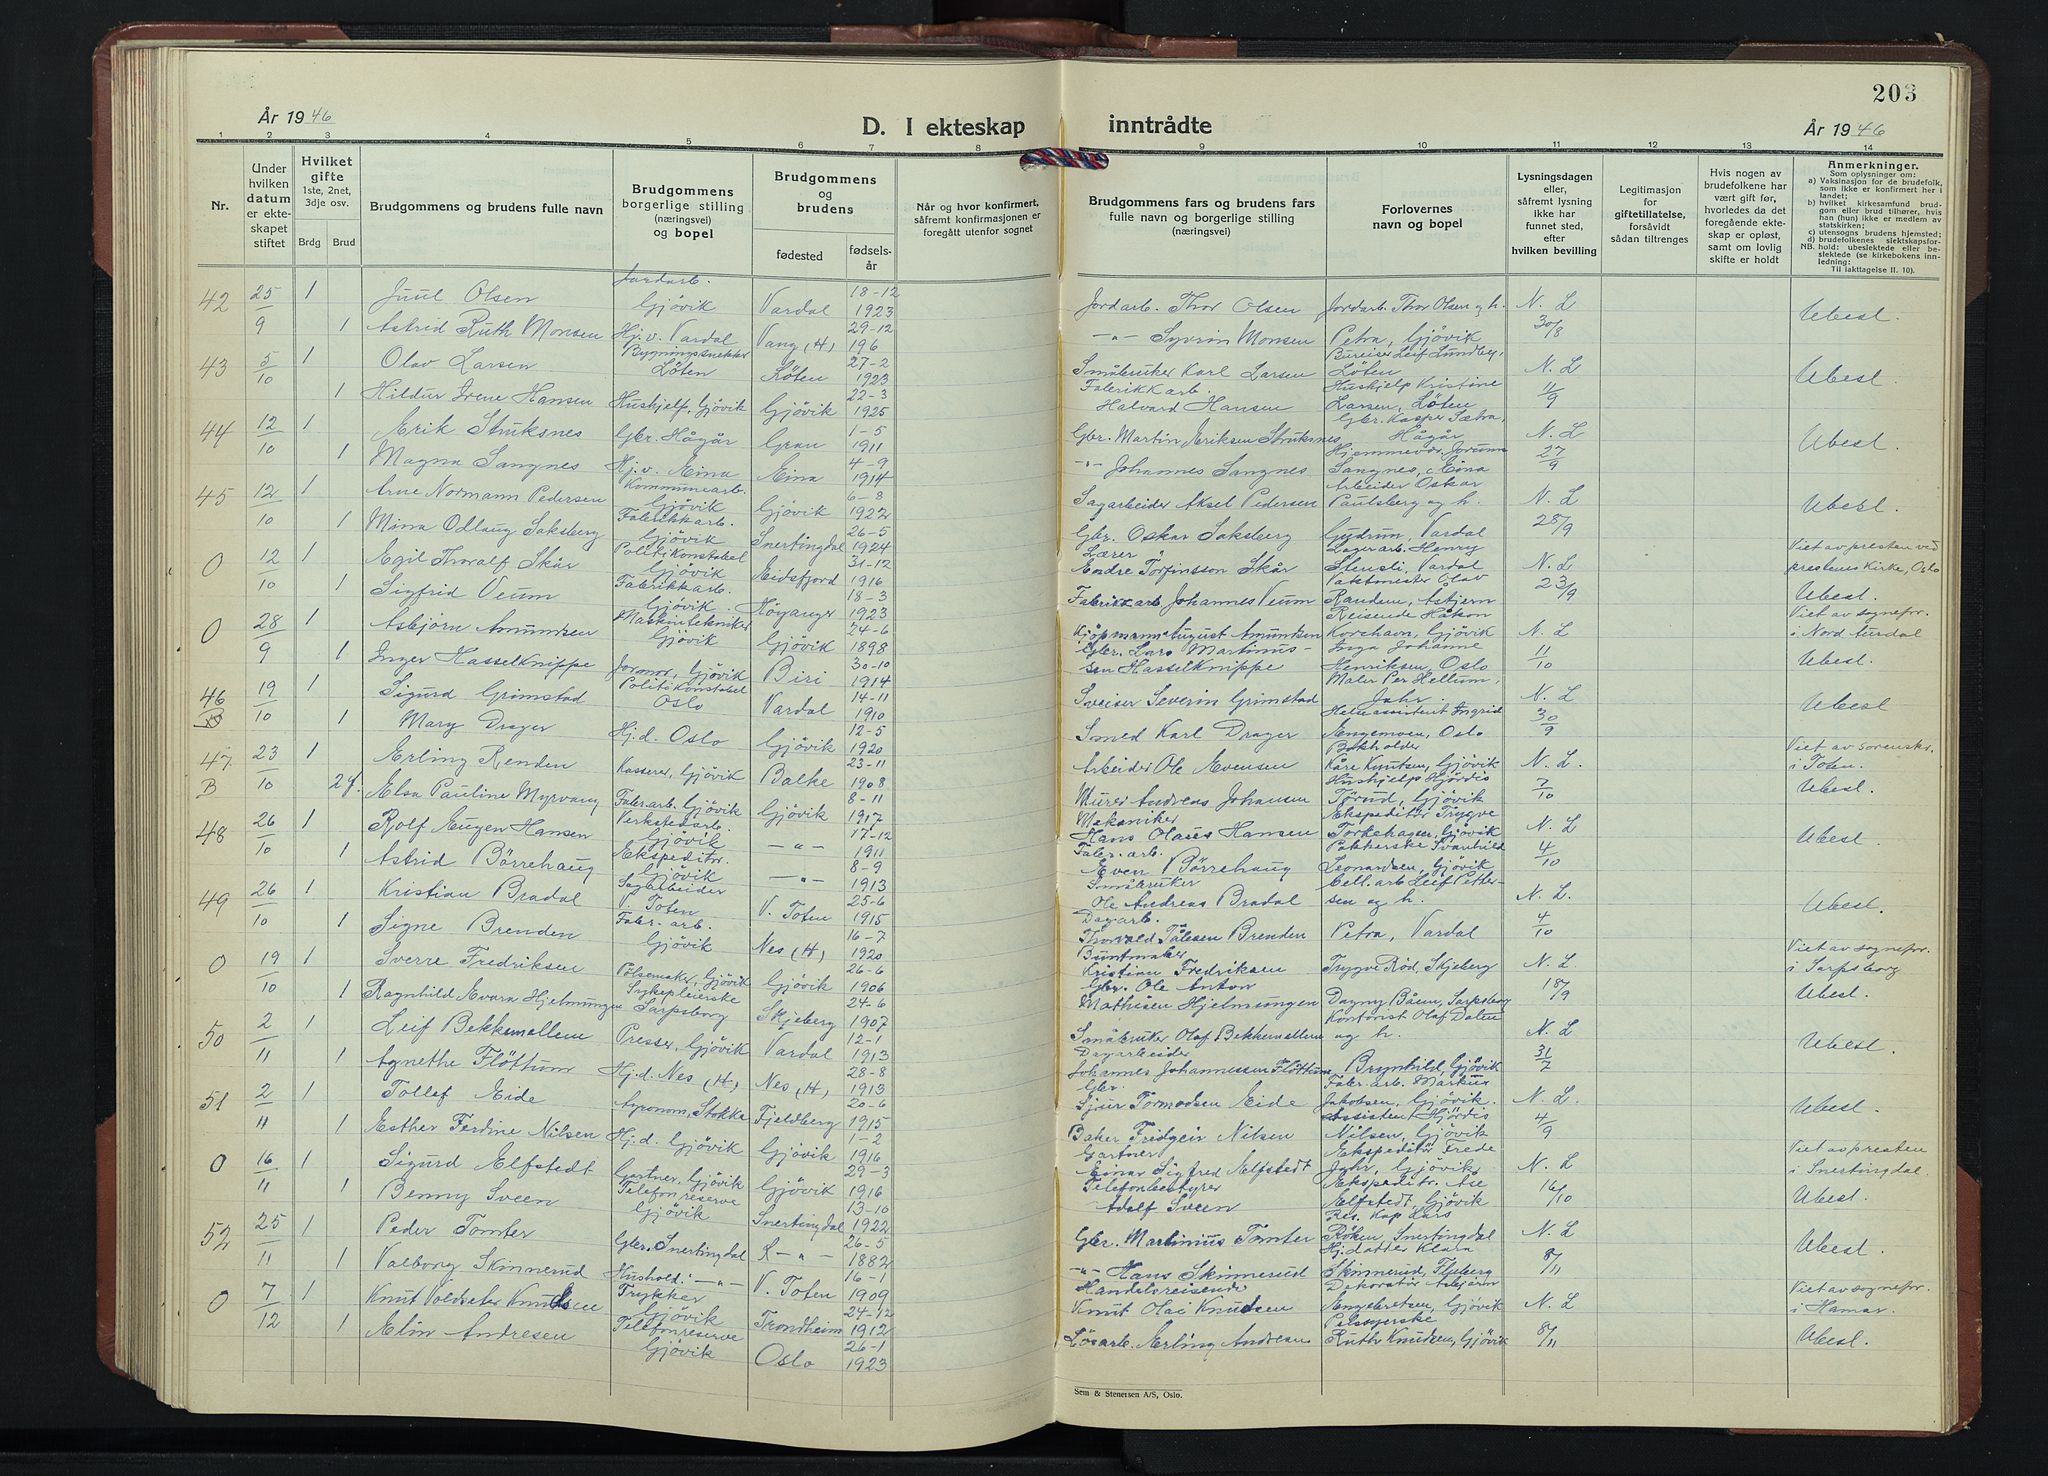 203
År 1946
D. I ekteskap inntrådte
År 1946
1 2 3 4 5 6 7 8 9 10 11 12 13 14
Nr.
Under hvilken datum er ekteskapet stiftet
Hvilket gifte 1ste, 2net, 3dje osv.
Brdg Brud
Brudgommens og brudens fulle navn
Brudgommens borgerlige stilling (næringsvei) og bopel
Brudgommens og brudens
fødested
fødselsår
Når og hvor konfirmert, såfremt konfirmasjonen er foregått utenfor sognet
Brudgommens fars og brudens fars fulle navn og borgerlige stilling (næringsvei)
Forlovernes navn og bopel
Lysningsdagen eller, såfremt lysning ikke har funnet sted, efter hvilken bevilling
Legitimasjon for giftetillatelse, forsåvidt sådan tiltrenges
Hvis nogen av brudefolkene har vært gift før, hvorledes da det foregående ekteskap er opløst, samt om lovlig skifte er holdt
Anmerkninger.
Som oplysninger om:
a) Vaksinasjon for de brudefolk, som ikke er konfirmert her i landet;
b) hvilket kirkesamfund brudgom eller brud tilhører, hvis han (hun) ikke er medlem av statskirken;
c) utensogns brudens hjemsted;
d) brudefolkenes slektskapsforhold: ubeslektede eller beslektede (se kirkebokens innledning:
NB.
Til iakttagelse II. 10).
42 25/9 1 Juul Olsen Jordarb. Gjövik Vardal 18-12 1923 Jordarb. Thor Olsen Jordarb. Thor Olsen og h. N. L 30/8 Ubesl.
1 Astrid Ruth Monsen Hj.v. Vardal Vang (H) 29-12 196 -"- Syvrin Monsen Petra, Gjövik
43 5/10 1 Olav Larsen Bygningssnekker Löten Löten 27-2 1923 Småbruker Karl Larsen Bureiser Leif Lundby, Löten N. L 11/9 Ubesl.
1 Hildur Irene Hansen Hushjelp, Gjövik Gjövik 22-3 1925 Fabrikkarb. Halvard Hansen Hushjelp Kristine Larsen, Löten
44 12/10 1 Erik Stuksnes Gbr. Hågår Gran 1-5 1911 Gbr. Martin Eriksen Stuksnes Gbr. Kasper Sætra, Hågår N. L 27/9 Ubesl.
1 Magna Sangnes Hj.v. Eina Eina 4-9 1914 -"- Johannes Sangnes Hjemmevær. Jorunn Sangnes, Eina
45 12/10 1 Arne Normann Pedersen Kommunearb. Gjövik Gjövik 6-8 1922 Sagarbeider Aksel Pedersen Arbeider Oskar Paulsberg og h. N. L 28/9 Ubesl.
1 Mina Odlaug Saksberg Fabrikkarb. Gjövik Snertingdal 26-5 1924 Gbr. Oskar Saksberg Gudrun, Vardal
0 12/10 1 Egil Thoralf Skår Politikonstabel Gjövik Eidsfjord 31-12 1916 Lærer Endre Torfinsson Skår Lagerarb. Henry Stensli, Vardal N. L 23/9 Viet av presten ved prestenes kirke, Oslo Ubesl.
1 Sigfrid Veum Fabrikkarb. Gjövik Höyanger 18-3 1923 Fabrikkarb. Johannes Veum Vaktmester Olav Randem, Askjem
0 28/9 1 Asbjörn Amundsen Maskintekniker Gjövik Gjövik 24-6 1898 Kjöpmann August Amundsen Reisende Håkon Korshavn, Gjövik N. L 11/10 Viet av sognepr. i Nord Aurdal Ubesl.
1 Inger Hasselknippe Jormor, Gjövik Biri 30-10 1914 Gbr. Lars Martinussen Hasselknippe Inga Johanne Henriksen, Oslo
46 B 19/10 1 Sigurd Grimstad Politikonstabel Oslo Vardal 14-11 1910 Sveiser Severin Grimstad Maler Per Hellum, Jahr N. L 30/9 Ubesl
1 Mary Drager Hj.d. Oslo Gjövik 12-5 1920 Smed Karl Drager Helseassistent Ingrid Engemoen, Oslo
47 B 23/10 1 Erling Renden Kasserer, Gjövik Balke 23-11 1908 Arbeider Ole Evensen Bokholder Kåre Knutsen, Gjövik N. L. 7/10 Viet av sorenskr. i Toten. Ubesl.
2g. Elsa Pauline Myrvang Fabr.arb. Gjövik Gjövik 8-11 1917 Murer Andreas Johansen Hushjelp Hjördis Törud, Gjövik
48 26/10 1 Rolf Eugen Hansen Verkstedarb. Gjövik -"- 17-12 1911 Mekaniker Hans Olaus Hansen Ekspeditör Trygve Torkehagen, Gjövik N. L 4/10 Ubesl.
1 Astrid Börrehaug Ekspeditör. Gjövik -"- 8-9 1913 Fabr.arb. Even Börrehaug Pakkerske Svanhild Leonardsen, Gjövik
49 26/10 1 Kristian Bradal Sagarbeider V. Toten V. Toten 25-6 1915 Småbruker Ole Andreas Bradal Cell.arb Leif Pettersen og h. N. L. 4/10 Ubesl.
1 Signe Brenden Fabr. arb. Gjövik Nes (H) 16-7 1920 Dagarb. Thorvald Tålesen Brenden Petra, Vardal
0 19/10 1 Sverre Fredriksen Pölsemaker, Gjövik Gjövik 26-6 1906 Buntmaker Kristian Fredriksen Trygve Röd, Skjeberg N. L. 18/9 Viet av sognepr. i Sarpsborg Ubesl.
1 Ragnhild Evara Hjelmungen Sykepleierske Sarpsborg Skjeberg 24-6 1907 Gbr. Ole Anton Mathisen Hjelmungen Dagny Båsen, Sarpsborg
50 2/11 1 Leif Bekkemellem Presser, Gjövik Vardal 12-1 1913 Småbruker Olaf Bekkemellem Kontorist Olaf Dalen og h. N. L 31/7 Ubesl.
1 Agnethe Flöttum Hj.d. Nes (H) Nes (H) 28-8 1913 Dagarbeider Johannes Johannessen Flöttum Brynhild, Gjövik
51 2/11 1 Tollef Eide Agronom, Stokke Fjeldberg 20-6 1915 Gbr. Sjur Tormodsen Eide Fabr.arb. Markus Jakobsen, Gjövik. N. L. 4/9 Ubesl.
1 Esther Ferdine Nilsen Hj.d. Gjövik Gjövik 1-2 1916 Baker Fridgeir Nilsen Assistent Hjördis Nilsen, Gjövik
0 16/11 1 Sigurd Elfstedt Gartner, Gjövik Gjövik 29-3 1916 Gartner Einar Sigfred Elfstedt Ekspeditör Frede Jahr, Gjövik N. L 16/10 Viet av presten i Snertingdal. Ubesl.
1 Benny Sveen Telefonreserve Gjövik Snertingdal 13-10 1922 Telefonbestyrer Adolf Sveen Ekspeditr. Åse Elfstedt, Gjövik
52 25/11 1 Peder Tomter Gbr. Snertingdal -"- 26-5 1882 Gbr. Martinius Tomter Res. Kap Lars Röken, Snertingdal N. L 8/11 Ubesl.
1 Valborg Skinnerud Hushold: -"- V. Toten 16-1 1909 -"- Hans Skinnerud Hj.datter Klara Skinnerud, Fluberg
0 7/12 1 Knut Voldseter Knudsen Trykker Gjövik Trondheim 24-12 1912 Handelsreisende Knut Olai Knudsen Dekoratör Asbjörn Engebretsen, Gjövik N. L 8/11 Viet av sognepr. i Hamar. Ubesl.
1 Elin Andresen Telefonreserve Gjövik Oslo 26-1 1923 Lösarb. Erling Andresen Pelssyerske Ruth Knudsen, Gjövik
Sem & Stenersen A/S, Oslo.